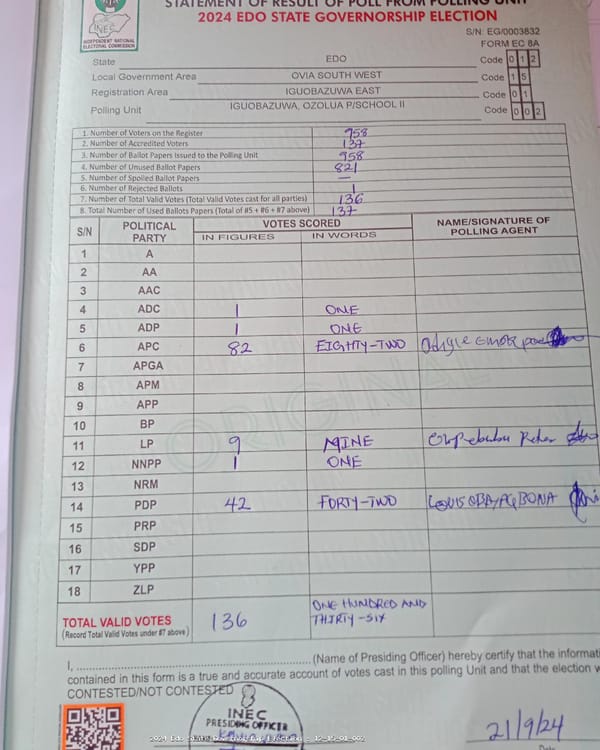 STATEMENT OF RESULT OF POLL FROM POLLING UNIT
2024 EDO STATE GOVERNORSHIP ELECTION
INEC
INDEPENDENT NATIONAL
ELECTORAL COMMISSION
S/N: EG/0003832
FORM EC 8A
State EDO Code 0 1 2
Local Government Area OVIA SOUTH WEST Code 1 5
Registration Area IGUOBAZUWA EAST Code 0 1
Polling Unit IGUOBAZUWA, OZOLUA P/SCHOOL II Code 0 0 2
1. Number of Voters on the Register 958
2. Number of Accredited Voters 137
3. Number of Ballot Papers Issued to the Polling Unit 958
4. Number of Unused Ballot Papers 821
5. Number of Spoiled Ballot Papers —
6. Number of Rejected Ballots 1
7. Number of Total Valid Votes (Total Valid Votes cast for all parties) 136
8. Total Number of Used Ballots Papers (Total of #5 + #6 + #7 above) 137
S/N POLITICAL PARTY VOTES SCORED NAME/SIGNATURE OF POLLING AGENT
IN FIGURES IN WORDS
1 A
2 AA
3 AAC
4 ADC 1 ONE
5 ADP 1 ONE
6 APC 82 EIGHTY-TWO
7 APGA
8 APM
9 APP
10 BP
11 LP 9 NINE
12 NNPP 1 ONE
13 NRM
14 PDP 42 FORTY-TWO LOUIS
15 PRP
16 SDP
17 YPP
18 ZLP
ORIGINAL
TOTAL VALID VOTES 136 ONE HUNDRED AND THIRTY-SIX
(Record Total Valid Votes under #7 above)
I, (Name of Presiding Officer) hereby certify that the informati
contained in this form is a true and accurate account of votes cast in this polling Unit and that the election w
CONTESTED/NOT CONTESTED
INEC
PRESIDING OFFICER
21/9/24
Date